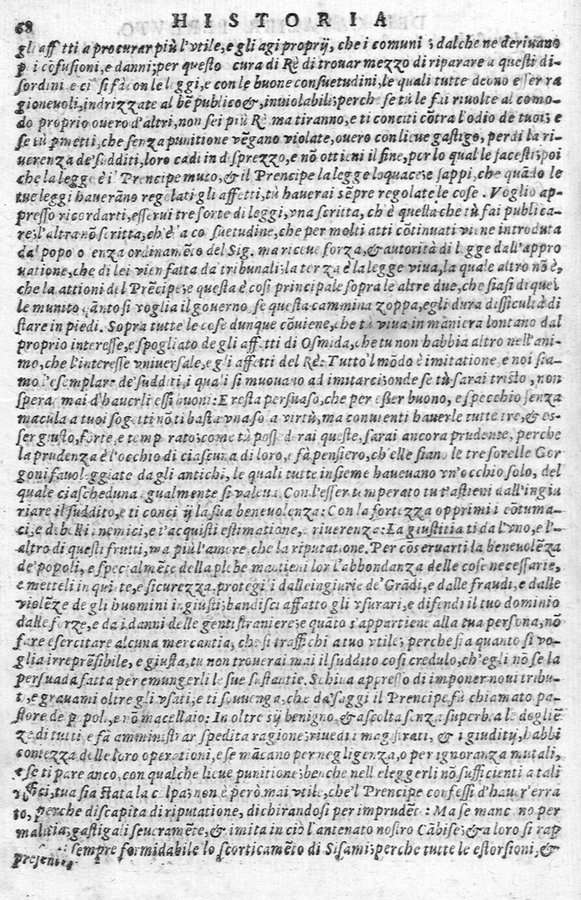 68 HISTORIA
gli affetti a procurar più l'vtile, e gli agi proprij, che i comuni; dal che ne deriuano
cõfusioni, e danni; per questo cura di Rè di trouar mezzo di riparare a questi di-
sordini e ciò si fà con le leggi, e con le buone consuetudini, le quali tutte deono esser ra
gioneuoli, indrizzate al bẽ publico &, inuiolabili; perche se tù le fai riuolte al como-
do proprio ouero d'altri, non sei più Rè, ma tiranno, e ti conciti cõtra l'odio de tuoi; e
se tù pmetti, che senza punitione vẽgano violate, ouero con lieue gastigo, perdi la ri-
uerenza de' sudditi, loro cadi in dispregzo, e nõ ottieni il fine, per lo qual le facesti; poi
che la legge è i' Prencipe muto, & il Prencipe la legge loquace; e sappi, che quãdo le
tue leggi haueranno regolati gli affetti, tù hauerai sẽpre regolate le cose. Voglio ap-
presso ricordarti, esserui tre sorte di leggi, vna scritta, ch'è questa che tù fai publica
re; l'altra nõ scritta, ch'è a co suetudine, che per molti atti cõtinuati viene introduta
da' popo o enza ordinamẽto del Sig. ma riceue forza, & autorità di l gge dall'appro
uatione, che di lei vien fatta da' tribunali: la terza è la legge viua, la quale altro nõ è,
che la attioni del Prẽcipe; e questa è così principale sopra le altre due, che sia si di quel
le munito quãnto si voglia il gouerno se questa cammina zoppa, egli dura difficultà di
stare in piedi. Sopra tutte le cose dunque cõuiene, che tù viua in maniera lontano dal
proprio interesse, e spogliato de gli affetti di Osmida, che tu non habbia altro nell'ani-
mo, che l'interesse vniuersale, e gli affetti del Rè: Tutto'l mõdo è imitatione, e noi sia-
mo l'esemplar: de' sudditi, i quali si muouano ad imitarci: onde se tù sarai tristo, non
spera, mai d'hauerli essi buoni: E resta persuaso, che per esser buono, e specchio senza
macula a tuoi sogetti nõ ti basta vna sola virtù, ma conuienti hauerle tutte trè, & es-
ser giusto, forte, e temp rato; come tù poss drai queste, sarai ancora prudente, perche
la prudenza è l'occhio di ciascuna di loro, e fà pensiero, ch'elle siano le tre sorelle Gor
goni fauoleggiate da gli antichi, le quali tutte insieme haueuano vn'occhio solo, del
quale ciascheduna igualmente si valeua. Con l'esser temperato tu t'astieni dall'ingiu
riare il suddito, e ti conci ij la sua beneuolenza: Con la fortezza opprimi i cõtuma-
ci, e debelli i nemici, e t'acquisti estimatione, e riuerenza: La giustitia ti dà l'vno, e l'-
altro di questi frutti, ma più l'amore, che la riputatione. Per cõseruarti la beneuolẽza
de' popoli, e specialmẽte della plebe mantieni lor l'abbondanza delle cose necessarie,
e metteli in quiete, e sicurezza, protegi i dalle ingiurie de' Grãdi, e dalle fraudi, e dalle
violẽze de gli huomini ingiusti: bandisci affatto gli vsurari, e difendi il tuo dominio
dalle forze, e da i danni delle genti straniere; e quãto s'appartiene alla tua persona, nõ
fare esercitare alcuna mercantia, che si traffichi a tuo vtile; perche sia quanto si vo-
glia irreprẽsibile, e giusta, tu non trouerai mai il suddito così credulo, ch'egli nõ se la
persuada fatta per emungerli le sue sustantie. Schiua appresso di impor noui tribu-
t:, e grauami oltre gli vsati, e ti souuenga, che da' saggi il Prencipe fù chiamato pa-
store de' popoli, e nõ macellaio: In oltre sij benigno, & ascolta senza superbia le doglie
ze di tutti, e fà amministrar spedita ragione; riuedi i magistrati, & i giuditij, habbi
contezza delle loro operationi, e se mãcano per negligenza, o per ignoranza mutali,
e se ti pare anco, con qualche lieue punitione; benche nell eleggerli nõ sufficienti a tali
ffici, tua sia stata la colpa; non è però mai vtile, che'l Prencipe confessi d'hauer'erra
to, perche discapita di riputatione, dichirandosi per imprudẽt: Ma se manc no per
malitia, gastigali seueramẽte, & imita in ciò l'antenato nostro Cãbise; & a loro si rap
presenti sempre formidabile lo scorticamẽto di Sisami; perche tutte le estorsioni, &